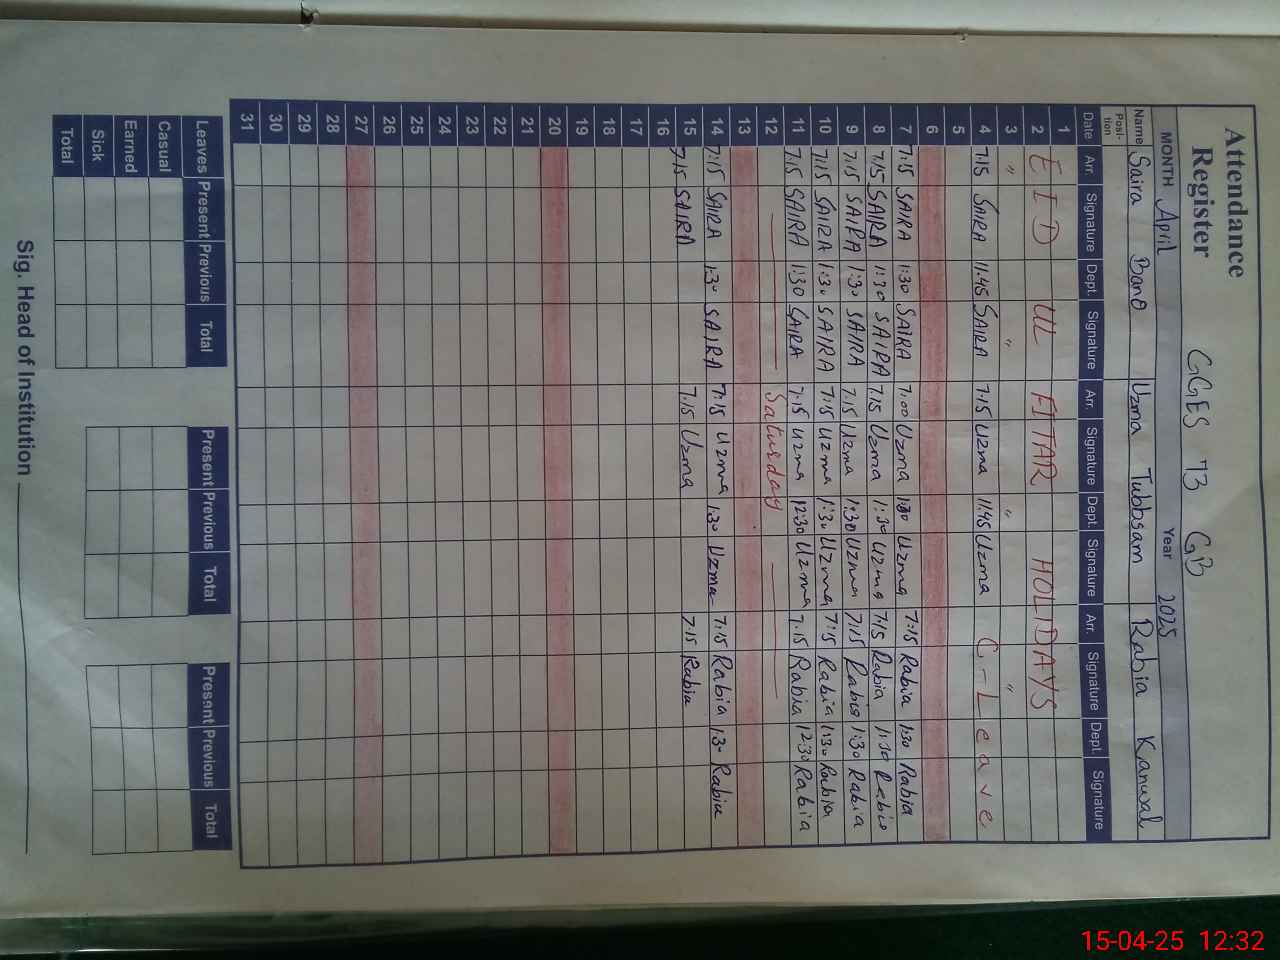 Attendance Register GGES 73 GB
MONTH April Year 2025
Name Saira Bano Uzma Tubbsam Rabia Kanwal
Posi-tion
Date Arr. Signature Dept. Signature Arr. Signature Dept. Signature Arr. Signature Dept. Signature
1
2 EID UL FITTAR HOLIDAYS
3 " " " "
4 7:15 SAIRA 11:45 SAIRA 7:15 Uzma 11:45 Uzma C-Leave
5
6
7 7:15 SAIRA 1:30 SAIRA 7:00 Uzma 1:30 Uzma 7:15 Rabia 1:30 Rabia
8 7:15 SAIRA 1:30 SAIRA 7:15 Uzma 1:30 Uzma 7:15 Rabia 1:30 Rabia
9 7:15 SAIRA 1:30 SAIRA 7:15 Uzma 1:30 Uzma 7:15 Rabia 1:30 Rabia
10 7:15 SAIRA 1:30 SAIRA 7:15 Uzma 1:30 Uzma 7:15 Rabia 1:30 Rabia
11 7:15 SAIRA 1:30 SAIRA 7:15 Uzma 12:30 Uzma 7:15 Rabia 12:30 Rabia
12 Saturday
13
14 7:15 SAIRA 1:30 SAIRA 7:15 Uzma 1:30 Uzma 7:15 Rabia 1:30 Rabia
15 7:15 SAIRA 7:15 Uzma 7:15 Rabia
16
17
18
19
20
21
22
23
24
25
26
27
28
29
30
31
Leaves Present Previous Total Present Previous Total Present Previous Total
Casual
Earned
Sick
Total
Sig. Head of Institution
15-04-25 12:32